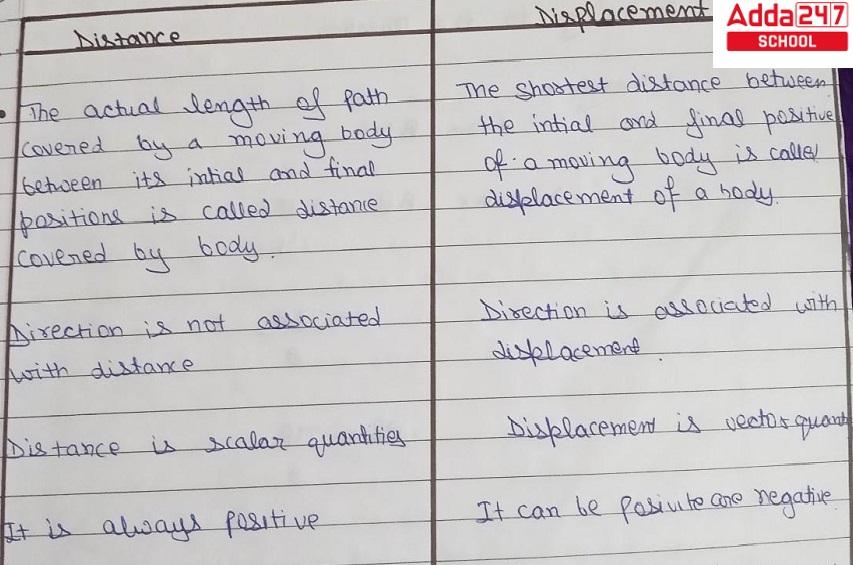 Distance
The actual length of Path
covered by a moving body
between its intial and final
positions is called distance
covered by body.
Direction is not associated
with distance
Distance is scalar quantities
It is always positive
Displacement
The shortest distance between
the intial and final positive
of a moving body is called
displacement of a body.
Direction is associated with
displacement.
Displacement is vector quant
It can be Posivite and negative
Adda247
SCHOOL